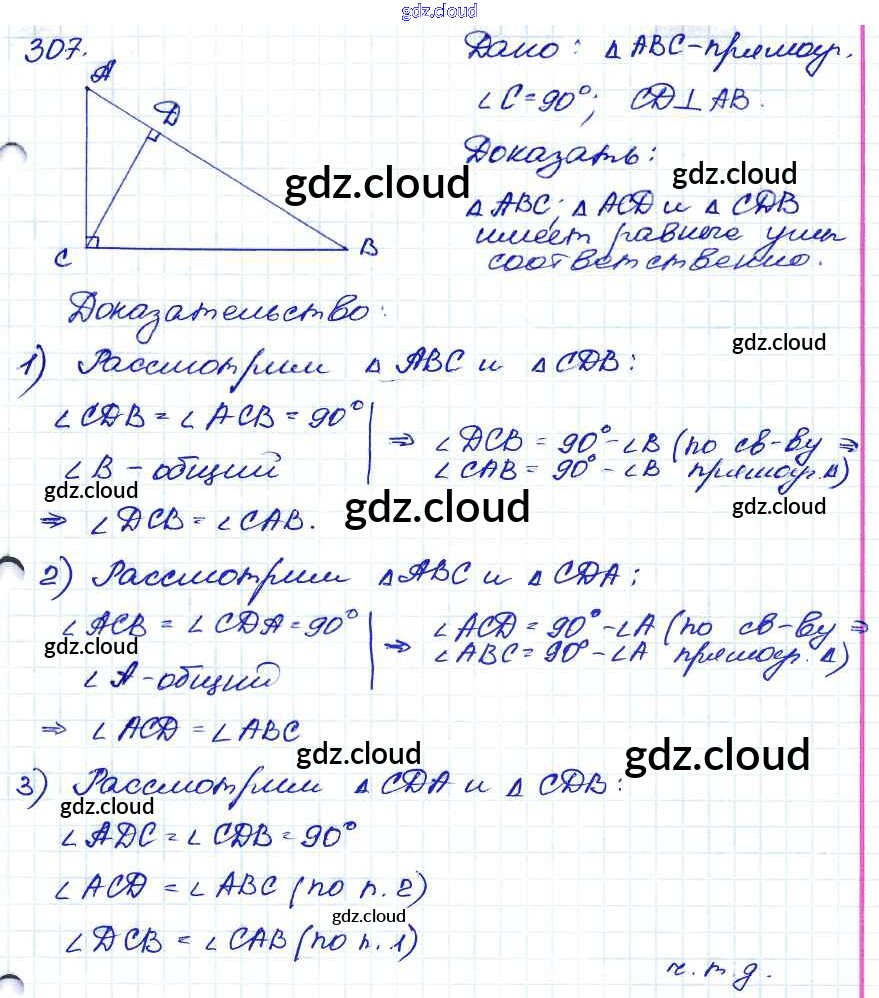 gdz.cloud
307.
Дано: △ABC-прямоуг.
∠C=90°; CD⊥AB.
Доказать:
△ABC; △ACD и △CDB
имеет равные углы
соответственно.
A
D
C
B
gdz.cloud
gdz.cloud
Доказательство:
gdz.cloud
1) Рассмотрим △ABC и △CDB:
∠CDB = ∠ACB = 90° | ⇒ ∠DCB = 90° - ∠B (по св-ву ⇒
∠B - общий | ∠CAB = 90° - ∠B прямоуг. △)
gdz.cloud
gdz.cloud
gdz.cloud
⇒ ∠DCB = ∠CAB.
2) Рассмотрим △ABC и △CDA:
∠ACB = ∠CDA = 90° | ⇒ ∠ACD = 90° - ∠A (по св-ву ⇒
gdz.cloud
∠A - общий | ∠ABC = 90° - ∠A прямоуг. △)
⇒ ∠ACD = ∠ABC
gdz.cloud
gdz.cloud
3) Рассмотрим △CDA и △CDB:
gdz.cloud
∠ADC = ∠CDB = 90°
∠ACD = ∠ABC (по п. 2)
gdz.cloud
∠DCB = ∠CAB (по п. 1)
ч.т.д.